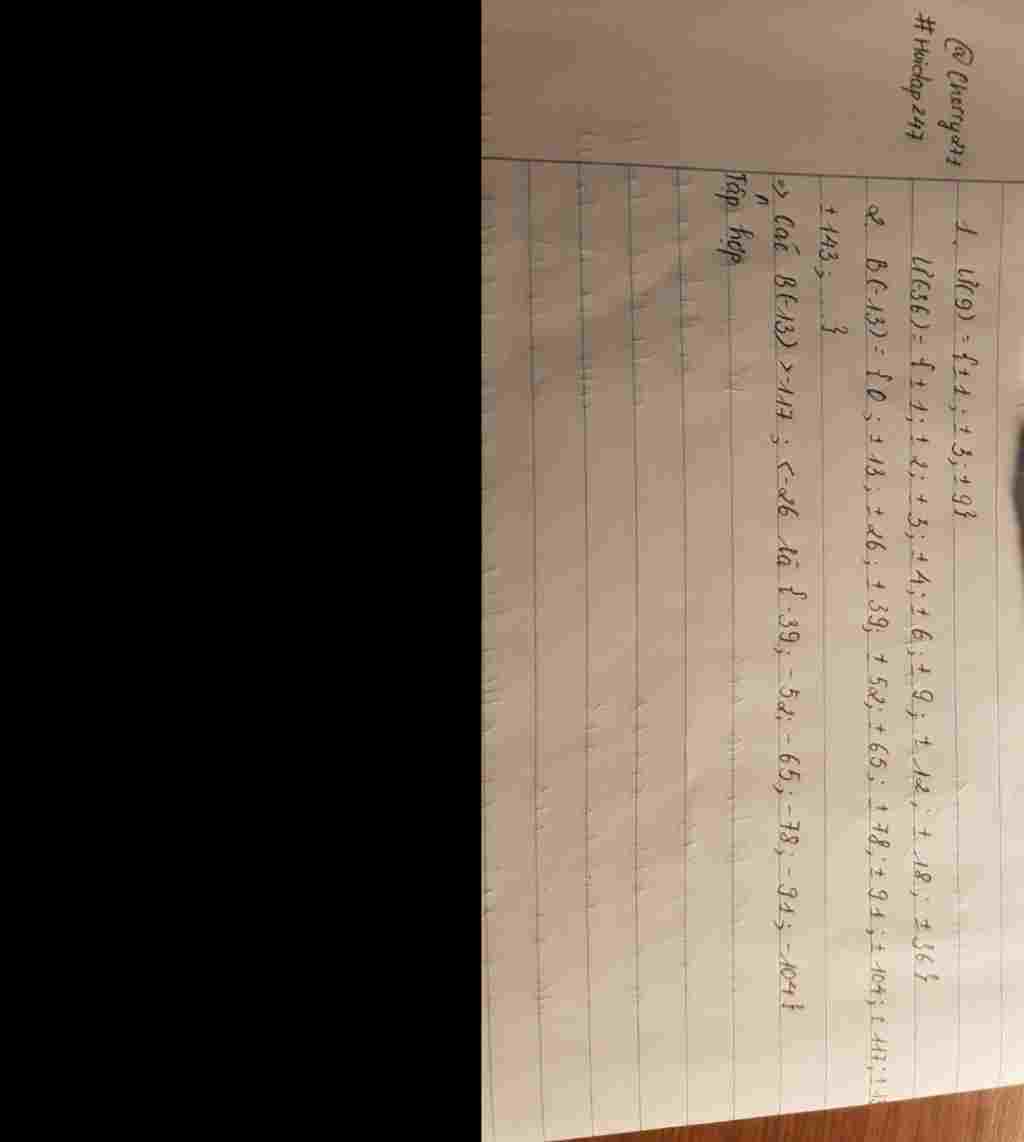 @Cherry277
#Hoidap247
1. Ư(9) = {±1; ±3; ±9}
Ư(-36) = {±1; ±2; ±3; ±4; ±6; ±9; ±12; ±18; ±36}
2. B(-13) = {0; ±13; ±26; ±39; ±52; ±65; ±78; ±91; ±104; ±117; ±
±143; ....}
=> Các B(-13) >-117; <-26 là {-39; -52; -65; -78; -91; -104}
Tập hợp